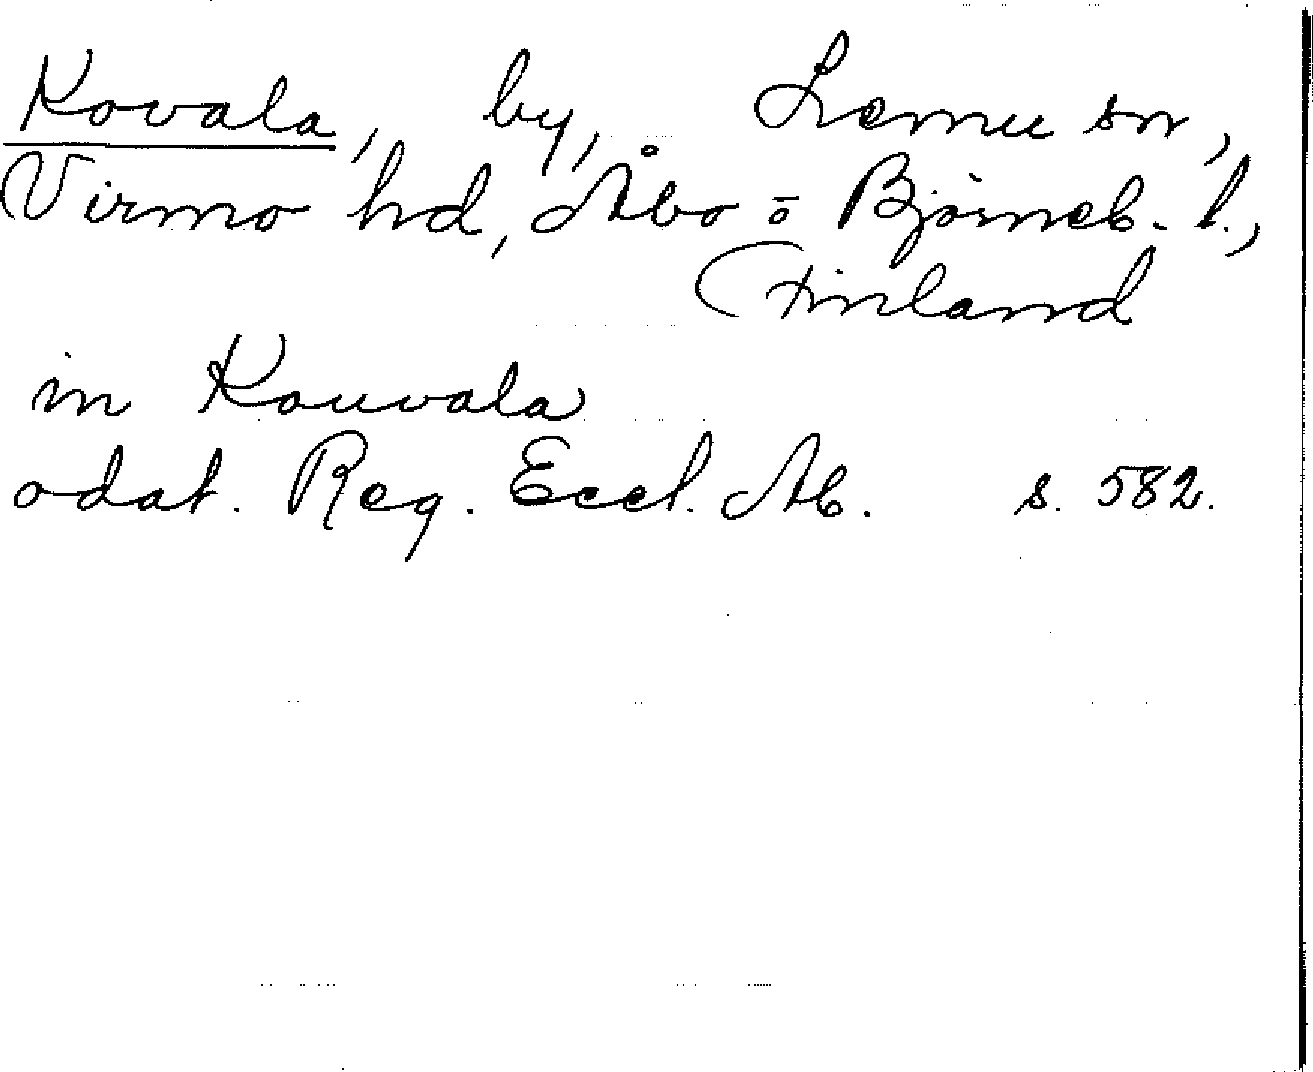 Kovala, by, Lemu sn,
Virmo hd, Åbo o Björneb. l.,
Finland
in Kouvala
odat. Reg. Eccl. Ab. s. 582.